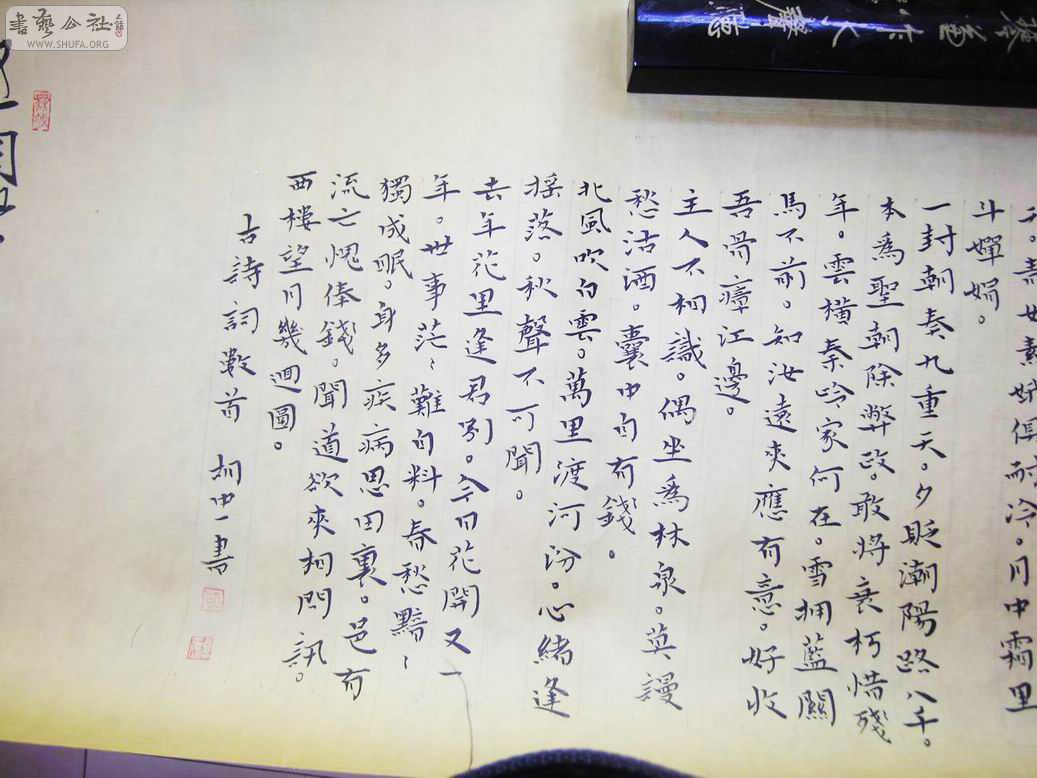 書藝公社
WWW.SHUFA.ORG
天。青女素娥俱耐冷。月中霜里
斗嬋娟。
一封朝奏九重天。夕貶潮陽路八千。
本為聖朝除弊政。敢將衰朽惜殘
年。雲橫秦岭家何在。雪拥藍關
馬不前。知汝遠來應有意。好收
吾骨瘴江邊。
主人不相識。偶坐為林泉。莫謾
愁沽酒。囊中自有錢。
北風吹白雲。萬里渡河汾。心緒逢
搖落。秋聲不可聞。
去年花里逢君別。今日花開又一
年。世事茫〻難自料。春愁黯〻
獨成眠。身多疾病思田裏。邑有
流亡愧俸錢。聞道欲來相問訊。
西樓望月幾迴圓。
古詩詞數首 柯中一書